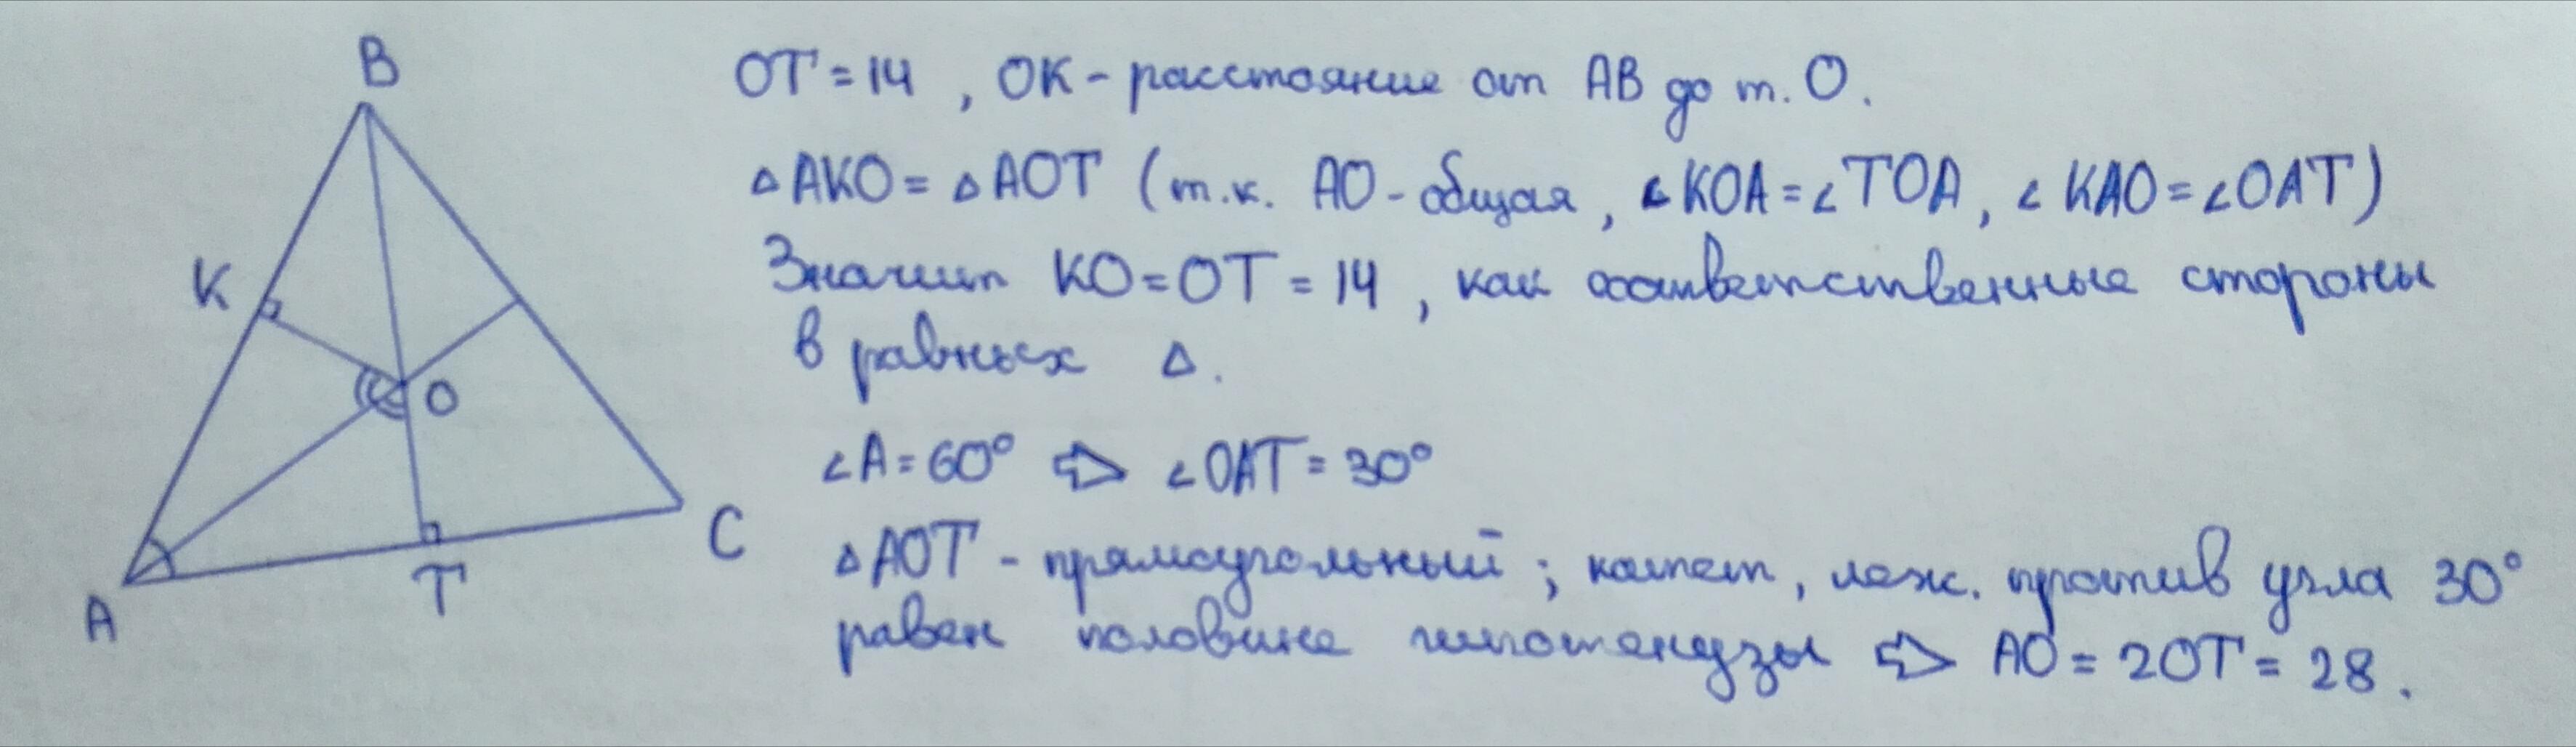 B
OT = 14 , OK - расстояние от AB до т. O.
△AKO = △AOT (т.к. AO - общая, ∠KOA = ∠TOA, ∠KAO = ∠OAT)
K
Значит KO = OT = 14 , как соответственные стороны
в равных △.
O
∠A = 60° ⇒ ∠OAT = 30°
C
△AOT - прямоугольный ; катет, леж. против угла 30°
T
A
равен половине гипотенузы ⇒ AO = 2OT = 28.